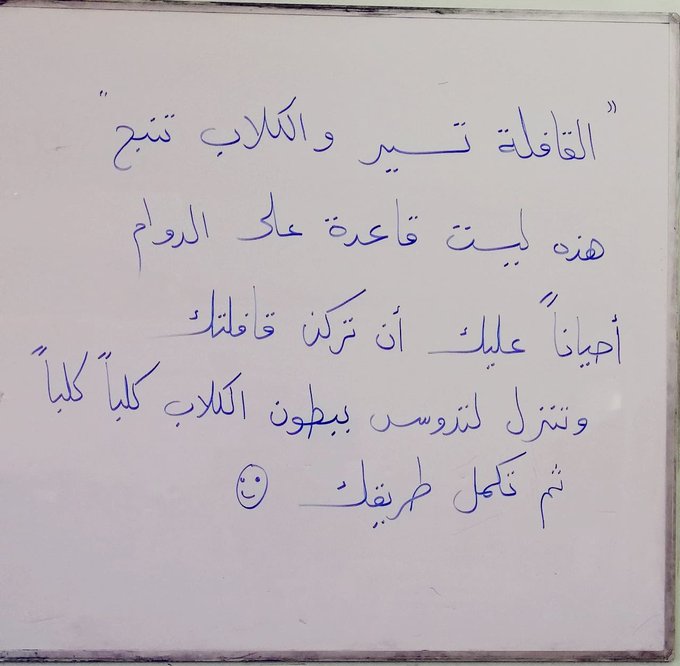 "القافلة تسير والكلاب تنبح"
هذه ليست قاعدة على الدوام
أحياناً عليك أن تركن قافلتك
وتنزل لتدوس ببطون الكلاب كلباً كلباً
ثم تكمل طريقك ☺